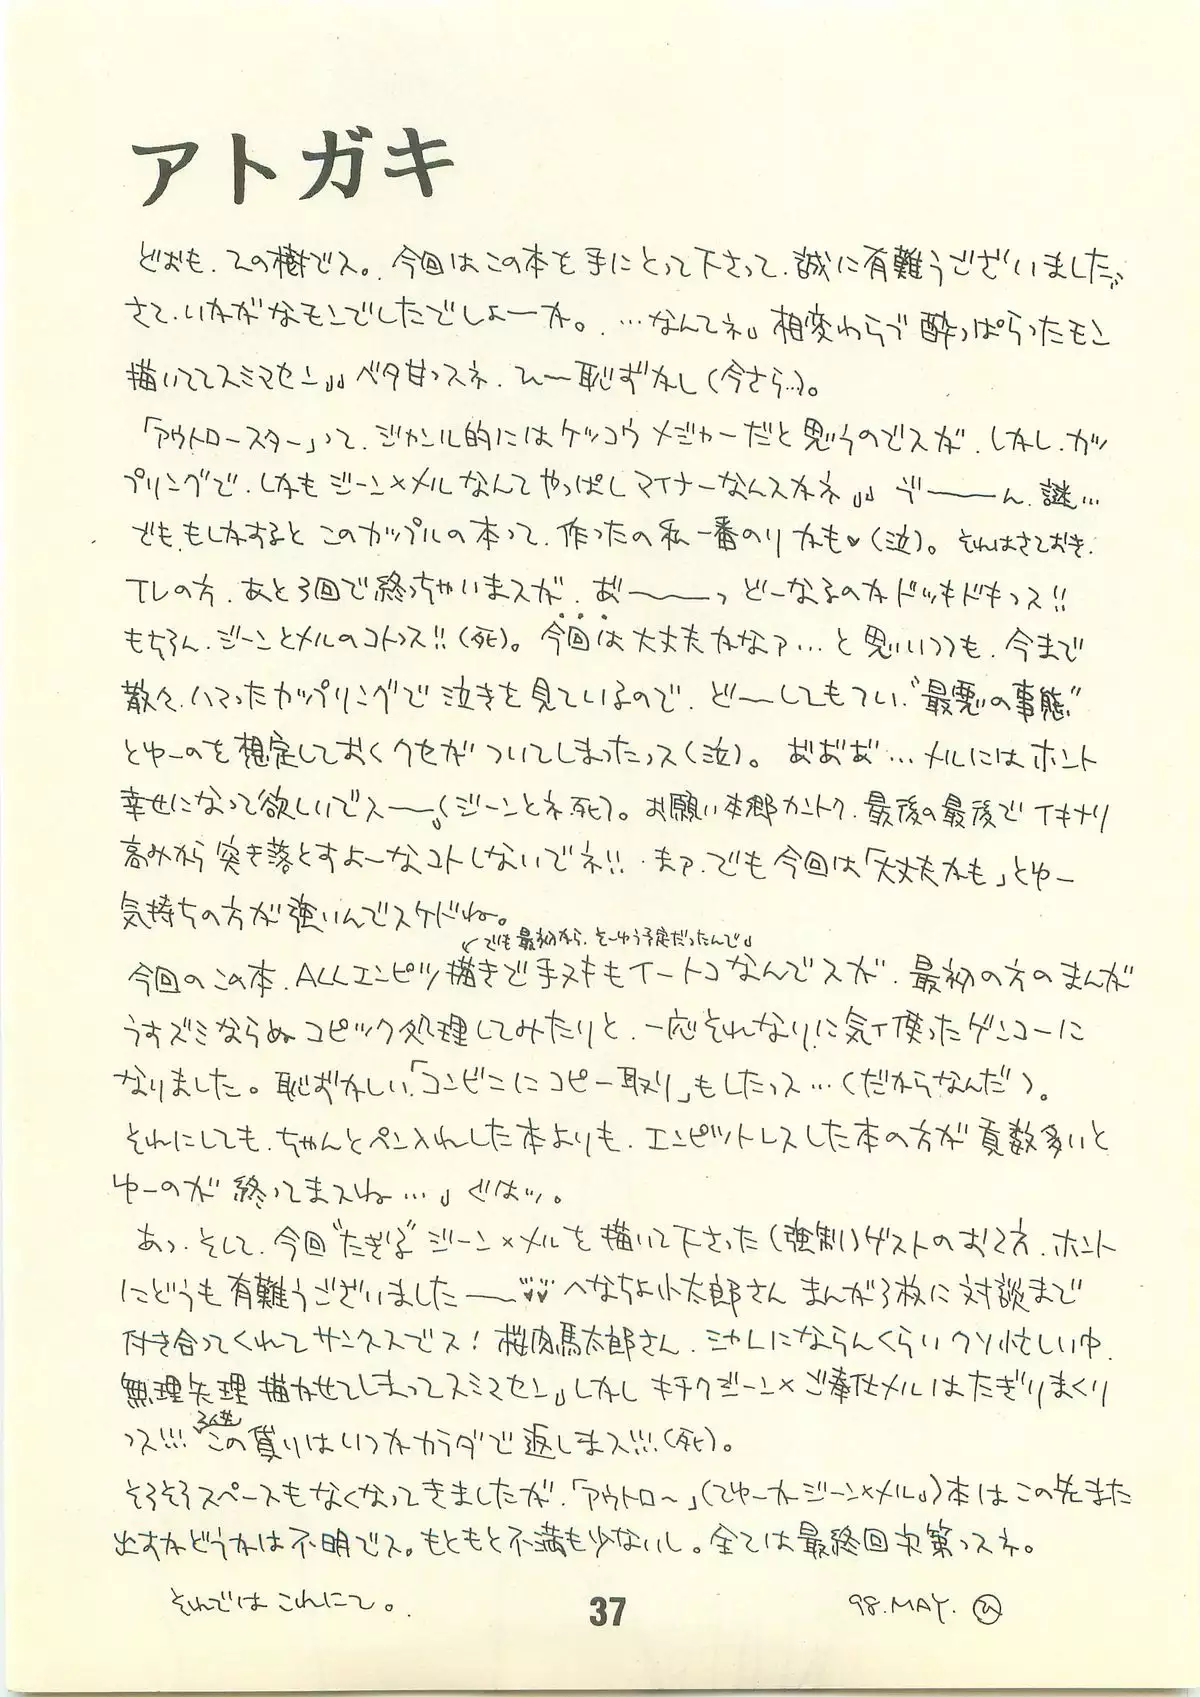 アトガキ
どおも、ひの樹でス。今回はこの本を手にとって下さって、誠に有難うございました。
さて、いかがなモンでしたでしょーか。…なんてネ。相変わらず酔っぱらったモン
描いててスミマセン。ベタ甘っスネ、ひ〜恥ずかし(今さら…)。
「アウトロースター」って、ジャンル的にはケッコウメジャーだと思うのでスが、しかし、カッ
プリングで、しかもジーン×メルなんてやっぱしマイナーなんスかネ。ゔーーん、謎…
でも、もしかするとこのカップルの本って、作ったの私一番のりかも♥(泣)。それはさておき、
TVの方、あと3回で終っちゃいまスが、お゙ーーっどーなるのかドッキドキっス!!
もちろん、ジーンとメルのコトっス!!(死)。今回は大丈夫かなァ…と思いつつも、今まで
散々、ハマったカップリングで泣きを見ているので、どーしてもてい、“最悪の事態”
とゆーのを想定しておくクセがついてしまったっス(泣)。お゙お゙お゙…メルにはホント
幸せになって欲しいでスー(ジーンとネ、死)。お願い本郷カントク、最後の最後でイキナリ
高みから突き落とすよーなコトしないでネ!!まァ、でも今回は「大丈夫かも」とゆー
気持ちの方が強いんでスケドね。
でも最初から、そーゆう予定だったんで
今回のこの本、ALLエンピツ描きで手ヌキもイートコなんでスが、最初の方のまんが
うすズミならぬコピック処理してみたりと、一応それなりに気イ使ったゲンコーに
なりました。恥ずかしい、「コンビニにコピー取り」もしたっス…(だからなんだ)。
それにしても、ちゃんとペン入れした本よりも、エンピツトレスした本の方が頁数多いと
ゆーのが終ってまスね…ぐはッ。
あっ、そして、今回“たぎる”ジーン×メルを描いて下さった(強制)ゲストのお2方、ホント
にどうも有難うございましたー♥♥へなちょ小太郎さんまんが3枚に対談まで
付き合ってくれてサンクスでス!桜肉馬太郎さん、シャレにならんくらいクソ忙しい中、
無理矢理描かせてしまってスミマセン。しかしキチクジーン×ご奉仕メルはたぎりまくり
っス!!!この借りはいつかカラダで返しまス!!!(死)。
そろそろスペースもなくなってきましたが、「アウトロ〜」(てゆーかジーン×メル)本はこの先また
出すかどうかは不明でス。もともと不満も少ないし。全ては最終回次第っスネ。
それではこれにて。
98.MAY. ひ
37